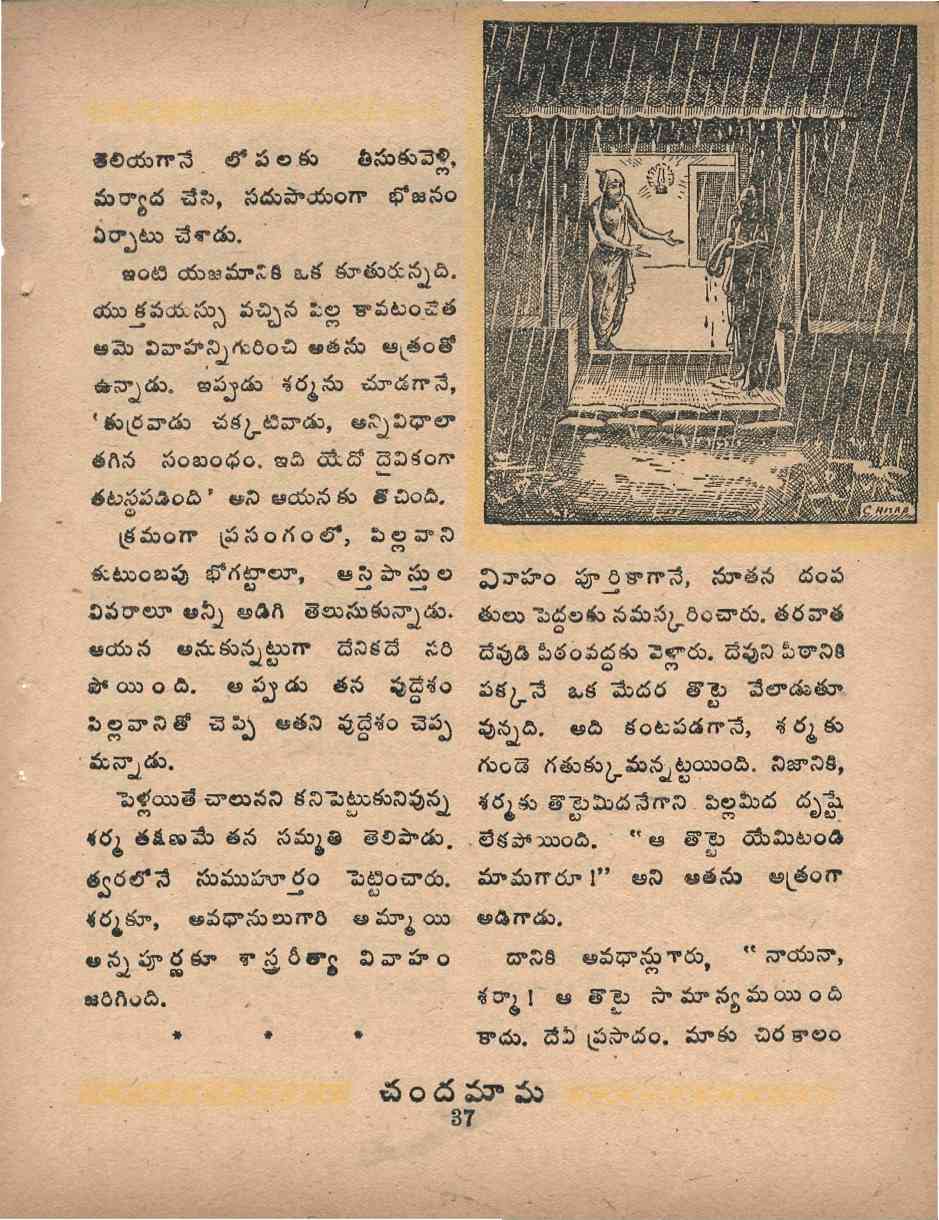 తెలియగానే లోపలకు తీసుకువెళ్లి,
మర్యాద చేసి, సదుపాయంగా భోజనం
ఏర్పాటు చేశాడు.
ఇంటి యజమానికి ఒక కూతురున్నది.
యుక్తవయస్సు వచ్చిన పిల్ల కావటంచేత
ఆమె వివాహాన్నిగురించి అతను ఆత్రంతో
ఉన్నాడు. ఇప్పుడు శర్మను చూడగానే,
‘కుర్రవాడు చక్కటివాడు, అన్నివిధాలా
తగిన సంబంధం. ఇది యేదో దైవికంగా
తటస్థపడింది’ అని ఆయనకు తోచింది.
క్రమంగా ప్రసంగంలో, పిల్లవాని
కుటుంబపు భోగట్టాలూ, ఆస్తిపాస్తుల
వివరాలూ అన్నీ అడిగి తెలుసుకున్నాడు.
ఆయన అనుకున్నట్టుగా దేనికదే సరి
పోయింది. అప్పుడు తన వుద్దేశం
పిల్లవానితో చెప్పి అతని వుద్దేశం చెప్ప
మన్నాడు.
పెళ్లయితే చాలునని కనిపెట్టుకునివున్న
శర్మ తక్షణమే తన సమ్మతి తెలిపాడు.
త్వరలోనే సుముహూర్తం పెట్టించారు.
శర్మకూ, అవధానులుగారి అమ్మాయి
అన్నపూర్ణకూ శాస్త్రరీత్యా వివాహం
జరిగింది.
* * *
CHITRA
వివాహం పూర్తికాగానే, నూతన దంప
తులు పెద్దలకు నమస్కరించారు. తరవాత
దేవుడి పీఠంవద్దకు వెళ్లారు. దేవుని పీఠానికి
పక్కనే ఒక మేదర తొట్టె వేలాడుతూ
వున్నది. అది కంటపడగానే, శర్మకు
గుండె గతుక్కుమన్నట్టయింది. నిజానికి,
శర్మకు తొట్టెమీదనేగాని పిల్లమీద దృష్టే
లేకపోయింది. “ఆ తొట్టె యేమిటండి
మామగారూ !” అని అతను ఆత్రంగా
అడిగాడు.
దానికి అవధాన్లుగారు, “నాయనా,
శర్మా ! ఆ తొట్టె సామాన్యమయింది
కాదు. దేవీ ప్రసాదం. మాకు చిరకాలం
చందమామ
37